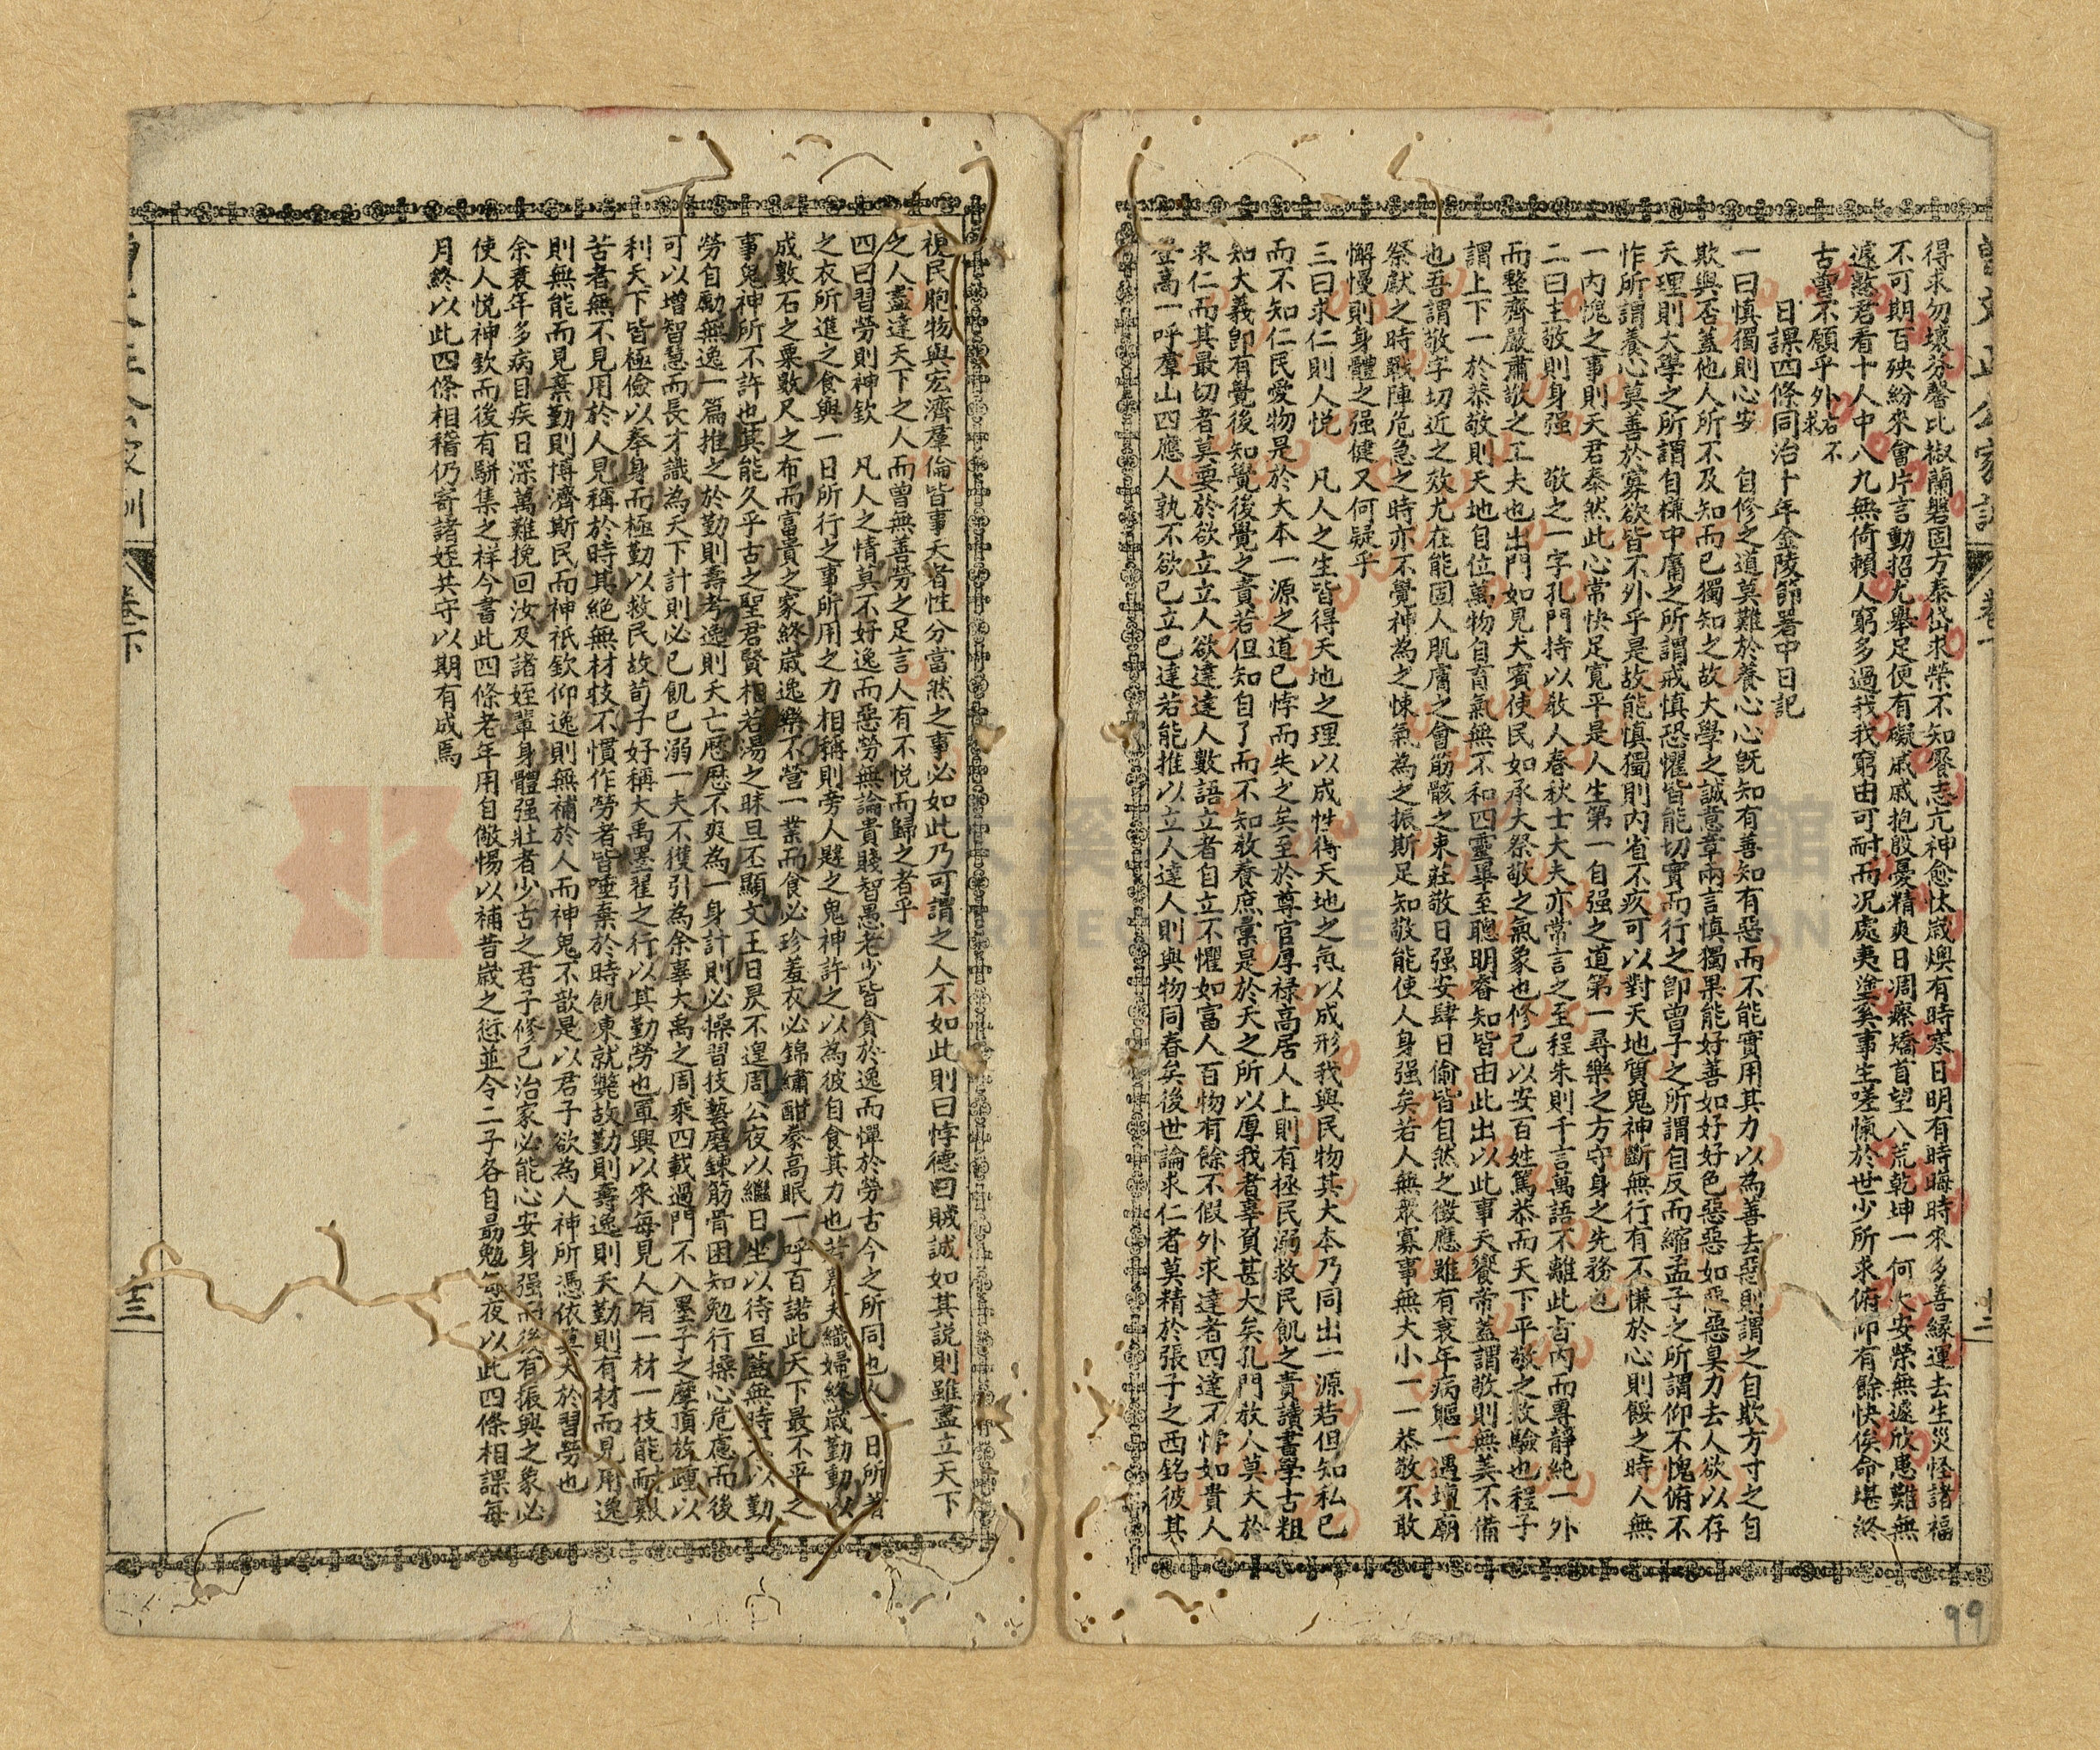 曾文正公家訓 卷下
得求勿壞芬馨比椒蘭磐固方泰岱求榮不知饜志亢神愈忲歲燠有時寒日明有時晦時來多善緣運去生災怪諸福
不可期百殃紛來會片言動招尤舉足便有礙戚戚抱殷憂精爽日凋瘵矯首望八荒乾坤一何大安榮無遽欣患難無
遽憝君看十人中八九無倚賴人窮多過我我窮由可耐而況處夷塗奚事生嗟愾於世少所求俯仰有餘快俟命堪終
古曾不願乎外右不求
日課四條同治十年金陵節署中日記
一曰慎獨則心安 自修之道莫難於養心心既知有善知有惡而不能實用其力以為善去惡則謂之自欺方寸之自
欺與否蓋他人所不及知而己獨知之故大學之誠意章兩言慎獨果能好善如好好色惡惡如惡惡臭力去人欲以存
天理則大學之所謂自慊中庸之所謂戒慎恐懼皆能切實而行之卽曾子之所謂自反而縮孟子之所謂仰不愧俯不
怍所謂養心莫善於寡欲皆不外乎是故能慎獨則內省不疚可以對天地質鬼神斷無行有不慊於心則餒之時人無
一內愧之事則天君泰然此心常快足寬平是人生第一自强之道第一尋樂之方守身之先務也
二曰主敬則身强 敬之一字孔門持以敎人春秋士大夫亦常言之至程朱則千言萬語不離此旨內而專靜純一外
而整齊嚴肅敬之工夫也出門如見大賓使民如承大祭敬之氣象也修己以安百姓篤恭而天下平敬之效驗也程子
謂上下一於恭敬則天地自位萬物自育氣無不和四靈畢至聰明睿知皆由此出以此事天饗帝蓋謂敬則無美不備
也吾謂敬字切近之效尤在能固人肌膚之會筋骸之束莊敬日强安肆日偷皆自然之徵應雖有衰年病軀一遇壇廟
祭獻之時戰陣危急之時亦不覺神為之悚氣為之振斯足知敬能使人身强矣若人無衆寡事無大小一一恭敬不敢
懈慢則身體之强健又何疑乎
三曰求仁則人悅 凡人之生皆得天地之理以成性得天地之氣以成形我與民物其大本乃同出一源若但知私己
而不知仁民愛物是於大本一源之道已悖而失之矣至於尊官厚祿高居人上則有拯民溺救民飢之責讀書學古粗
知大義卽有覺後知覺後覺之責若但知自了而不知敎養庶彙是於天之所以厚我者辜負甚大矣孔門敎人莫大於
求仁而其最切者莫要於欲立立人欲達達人數語立者自立不懼如富人百物有餘不假外求達者四達不悖如貴人
登高一呼羣山四應人孰不欲己立己達若能推以立人達人則與物同春矣後世論求仁者莫精於張子之西銘彼其
視民胞物與宏濟羣倫皆事天者性分當然之事必如此乃可謂之人不如此則曰悖德曰賊誠如其說則雖盡立天下
之人盡達天下之人而曾無善勞之足言人有不悅而歸之者乎
四曰習勞則神欽 凡人之情莫不好逸而惡勞無論貴賤智愚老少皆貪於逸而憚於勞古今之所同也人一日所著
之衣所進之食與一日所行之事所用之力相稱則旁人韙之鬼神許之以為彼自食其力也若農夫織婦終歲勤動以
成數石之粟數尺之布而富貴之家終歲逸樂不營一業而食必珍羞衣必錦繡酣豢高眠一呼百諾此天下最不平之
事鬼神所不許也其能久乎古之聖君賢相若湯之昧旦丕顯文王日昃不遑周公夜以繼日坐以待旦蓋無時不以勤
勞自勵無逸一篇推之於勤則壽考逸則夭亡歷歷不爽為一身計則必操習技藝磨鍊筋骨困知勉行操心危慮而後
可以增智慧而長才識為天下計則必己飢己溺一夫不獲引為余辜大禹之周乘四載過門不入墨子之摩頂放踵以
利天下皆極儉以奉身而極勤以救民故荀子好稱大禹墨翟之行以其勤勞也軍興以來每見人有一材一技能耐艱
苦者無不見用於人見稱於時其絕無材技不慣作勞者皆唾棄於時飢凍就斃故勤則壽逸則夭勤則有材而見用逸
則無能而見棄勤則博濟斯民而神祇欽仰逸則無補於人而神鬼不歆是以君子欲為人神所憑依莫大於習勞也
余衰年多病目疾日深萬難挽回汝及諸姪輩身體强壯者少古之君子修己治家必能心安身强而後有振興之象必
使人悅神欽而後有駢集之祥今書此四條老年用自儆惕以補昔歲之愆並令二子各自勗勉每夜以此四條相課每
月終以此四條相稽仍寄諸姪共守以期有成焉
卷下
十三
99